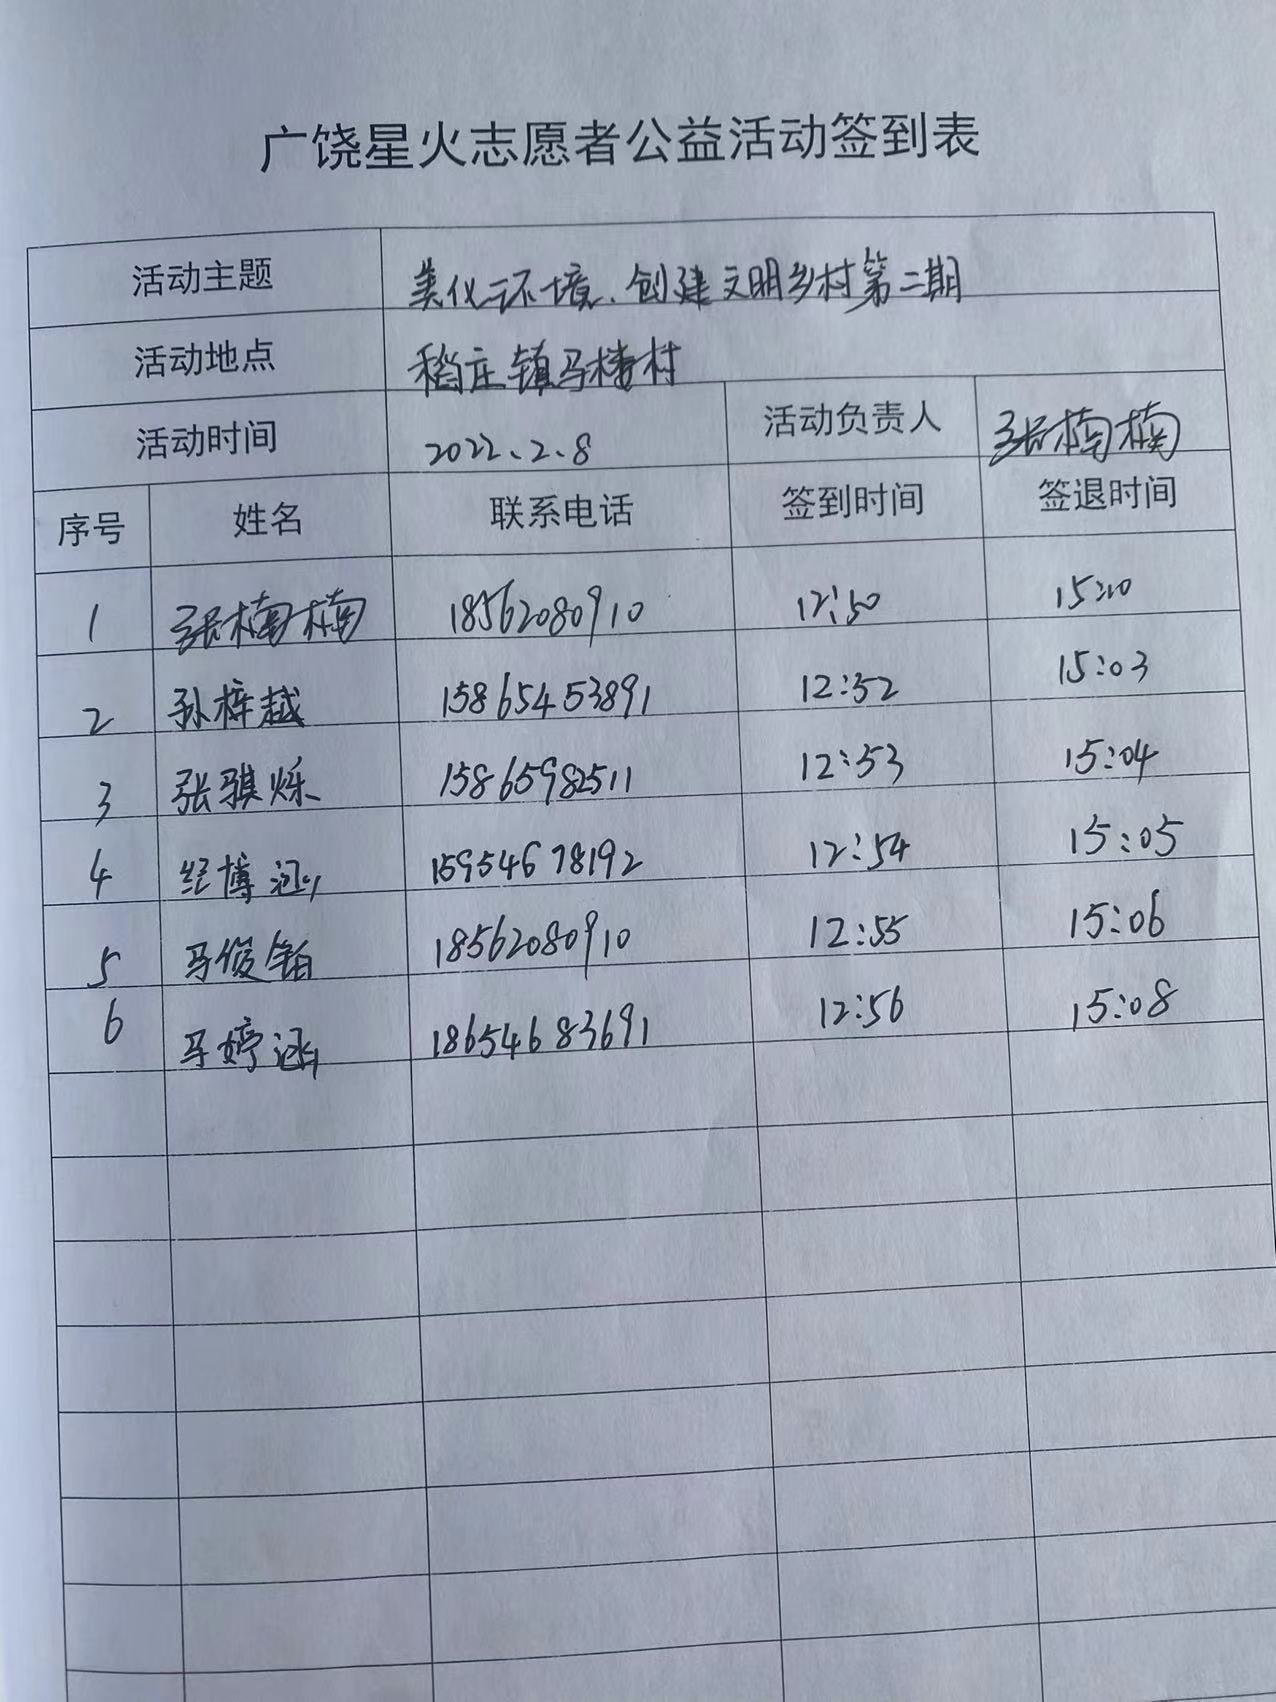 广饶星火志愿者公益活动签到表
活动主题 美化环境、创建文明乡村第二期
活动地点 稻庄镇马楼村
活动时间 2022.2.8 活动负责人 张楠楠
序号 姓名 联系电话 签到时间 签退时间
1 张楠楠 18562080910 12:50 15:10
2 孙梓越 15865453891 12:52 15:03
3 张骐烁 15865982511 12:53 15:04
4 博涵 15954678192 12:54 15:05
5 马俊铂 18562080910 12:55 15:06
6 马婷涵 18654683691 12:56 15:08